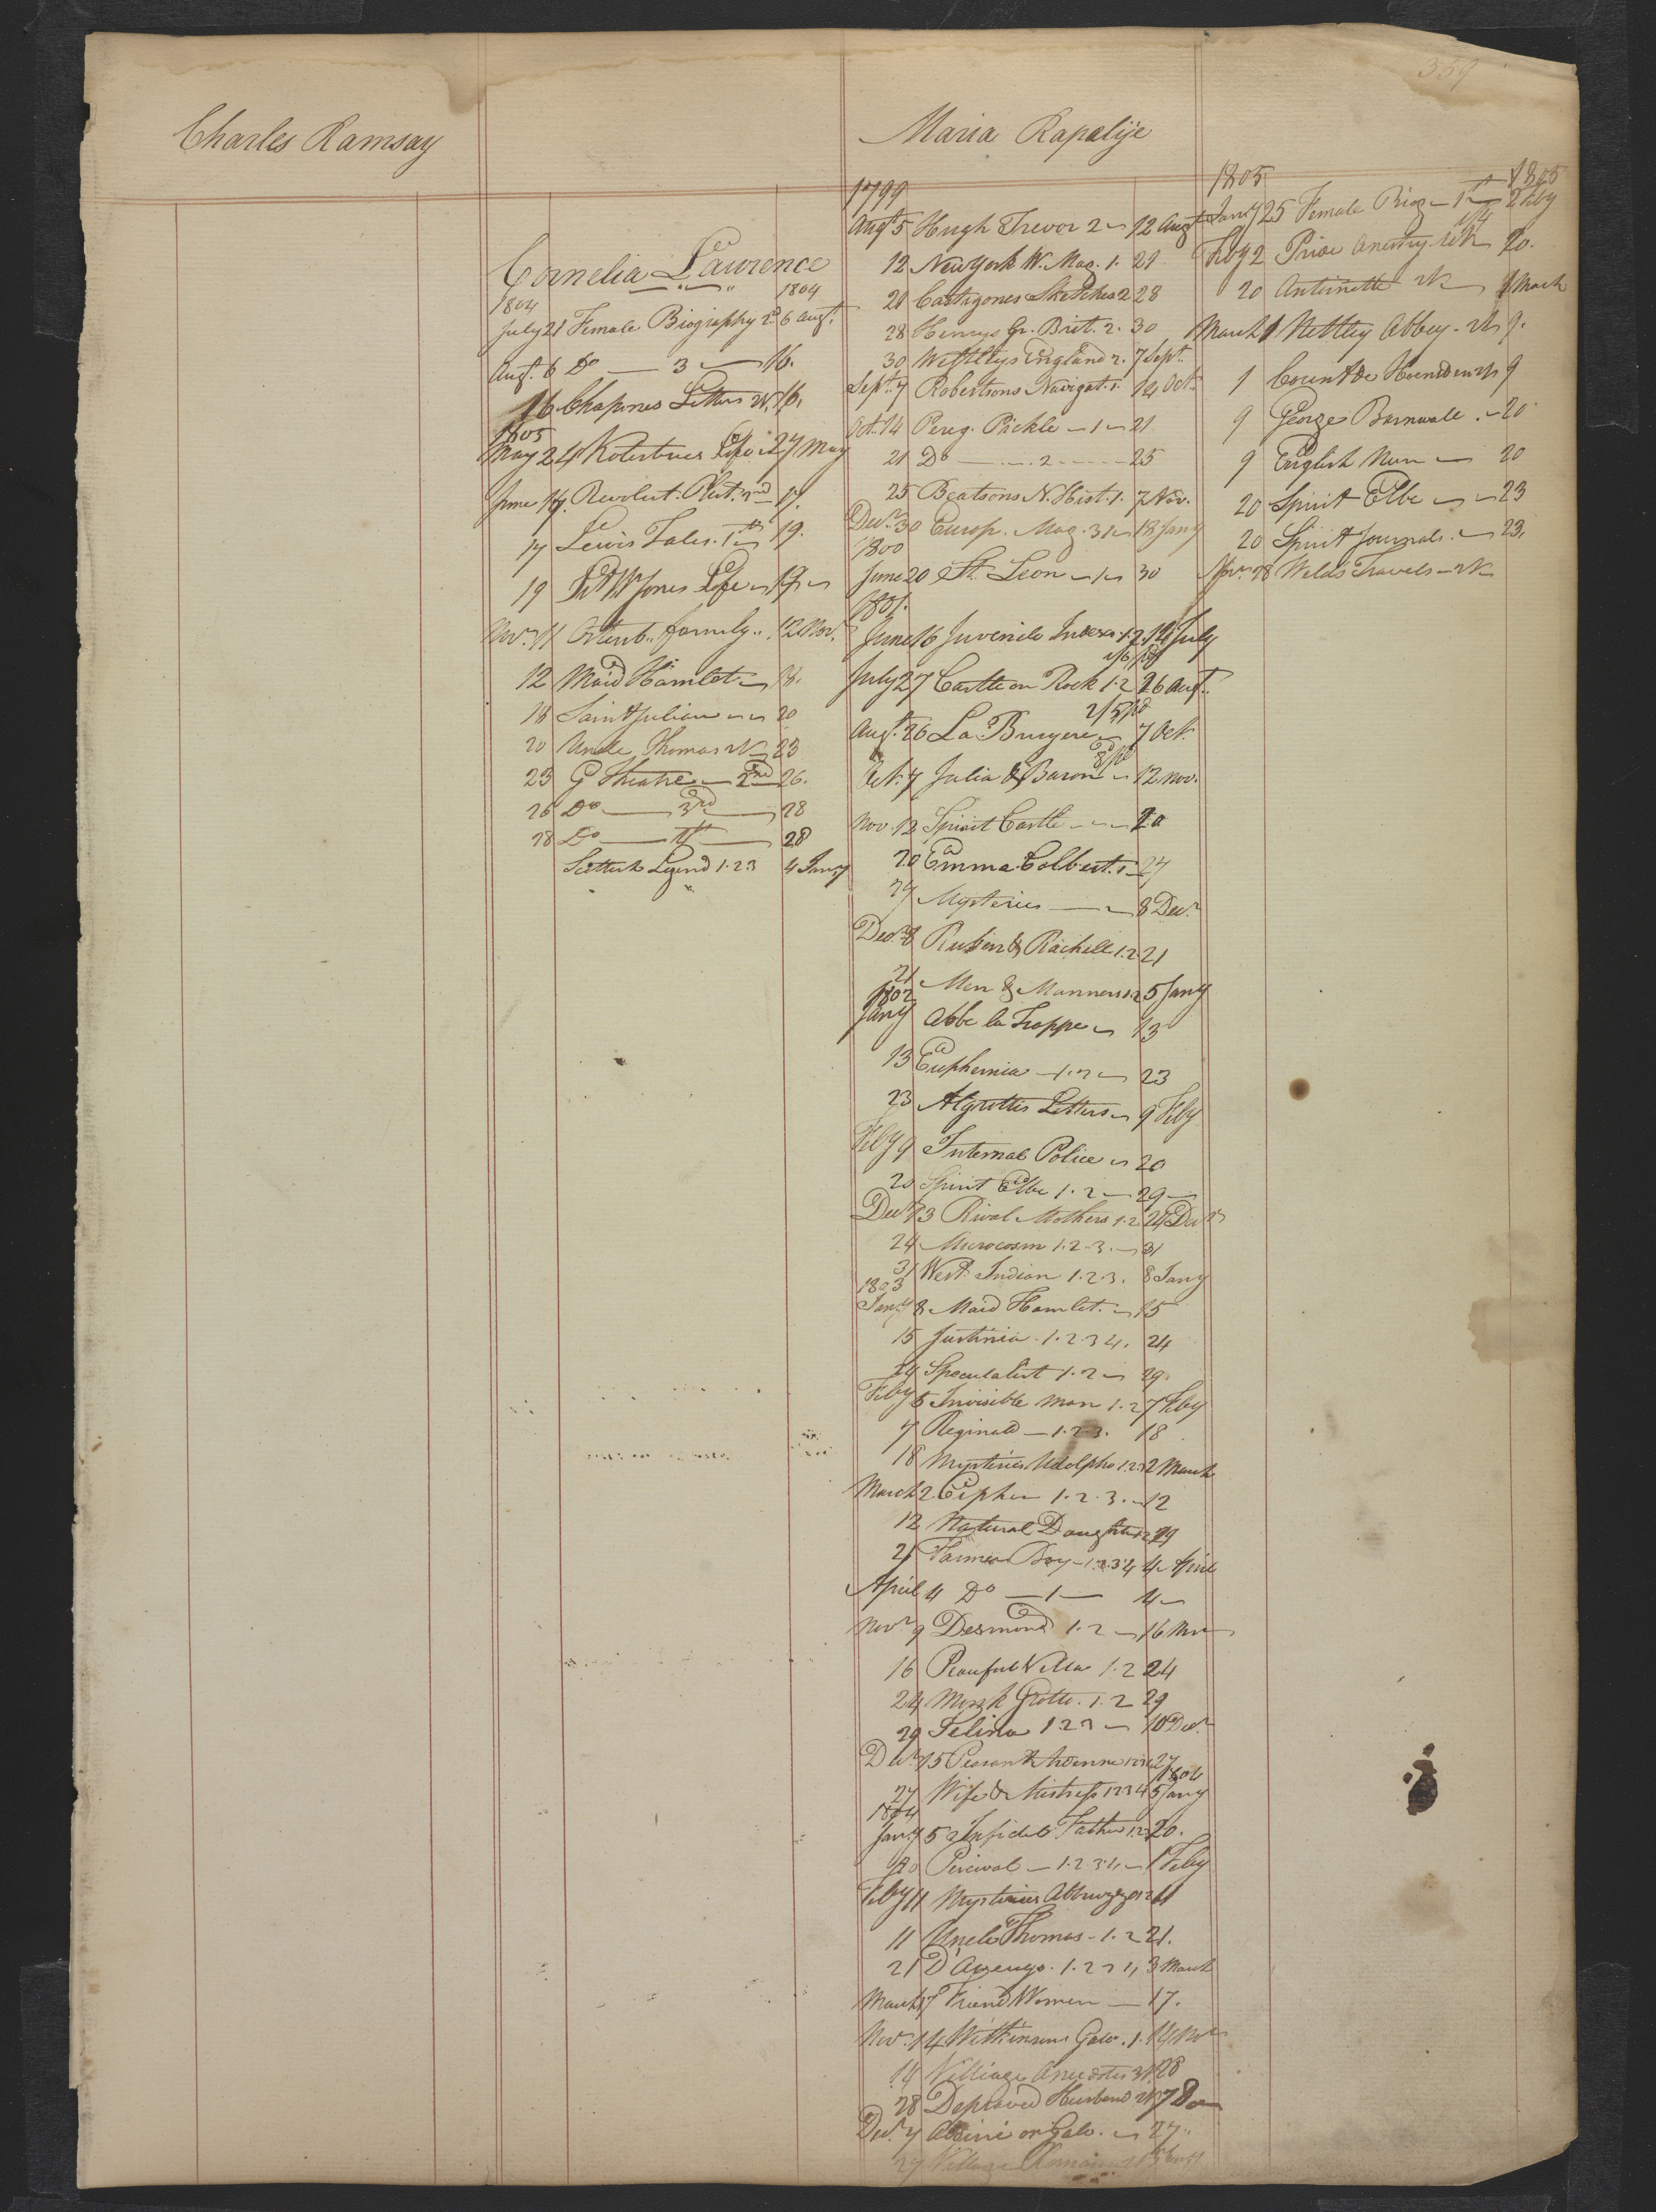 359
Charles Ramsay
Cornelia Laurence
1804 1804
July 21 Female Biography 2d 6 Augt.
Augt. 6 Do — 3 — 16.
16 Chapones Letters 16.
1805
May 24 Kotzebues Life 27 May
June 14 Revolut. Plut. 2nd 17.
17 Lewis Tales. 1st 19.
19 Sr Wm Jones Life 19
Novr. 11 Ortenb. family 12 Novr.
12 Maid Hamlet 18.
18 Saint Julien 20
20 Uncle Thomas 23
23 G Theatre — 2nd 26.
26 Do — 3rd — 28
28 Do — 4th — 28
Scottish Legend 1.2.3 4 Jany
Maria Rapalije
1799
Augt 5 Hugh Trevor 2 12 Augt
12 New York W. Mag. 1. 21
21 Castigones Sketches 2 28
28 Henrys Gr. Brit. 2. 30
30 England 2. 7 Sept.
Sept. 7 Robertsons Navigat. 1. 14 Oct.
Oct. 14 Pereg. Pickle — 1 — 21
21 Do — 2 — 25
25 Beatsons N. Hist. 1. 7 Nov.
Decr. 30 Europ. Mag. 31 18 Jany
1800
June 20 St. Leon — 1 — 30
1801.
June 16 Juvenile Index 1.2. 14 July
July 27 Castle on Rock 1.2 26 Augt.
2/5 pd
Augt. 26 La Bruyere 7 Oct.
Oct. 7 Julia & Baron 12 Nov.
Nov. 12 Spirit Castle — 20
20 Emma Colbert. 1 — 27
27 Mysteries — 8 Decr
Decr. 8 Rubin & Rachell 1.2 21
21 Men & Manners 1.2 5 Jany
1802
Jany Abbe la Trappe 13
13 Euphemia — 1.2 — 23
23 Algrottis Letters 9 Feby
Feby 9 Internal Police 20
20 Spirit Elbe 1.2 — 29 —
Decr 13 Rival Mothers 1.2 24 Decr
24 Microcosm 1.2.3. — 31
31 West Indian 1.2.3. 8 Jany
1803
Jany 8 Maid Hamlet. 15
15 Justinia. 1.2.3 4. 24
24 Speculatist 1.2 29
Feby 5 Invisible Man 1.2 7 Feby
7 Reginald — 1.2.3. 18
18 Mysteries Udolpho 1.2.3 2 March
March 2 Cipher 1.2.3. 12
12 Natural Daughter 1.2 21
21 Farmer Boy — 1.2.3 4 4 April
April 4 Do — 1 — 4 —
Novr 9 Desmond 1.2 — 16 Nov
16 Peaceful Villa 1.2 24
24 Monk Grotto. 1.2 29
29 Selina 1 2 3 — 10 Decr.
Decr 15 Peasant Ardenne 27
1804
27 Wife & Mistress 1 2 3 4 5 Jany
1804
Jany 5 Infidel Father 1.2.3 20.
20 Percival — 1.2 3.4 — 1 Feby
Feby 11 Mysteries Abbruzzo 1 2 11
11 Uncle Thomas — 1.2 21.
21 3 March
March 7 Friend Women — 17.
Novr. 14 Wilkinsons Gaw. 1. 14 Nov
14 Village Anecdotes 28
28 Depraved Husband 7 Dec
Decr. 7 27
27 Village
1805 1805
Jany 25 Female Biog — 1st 2 Feby
Feby 2 Price Ancestry 20.
20 Antinette 1 March
March 1 Nettley Abbey 9.
1 Count de 9
9 George Barnwale 20
9 English Nun — 20
20 Spirit Elbe 23
20 Spirit Journals 23.
Novr. 28 Welds Travels